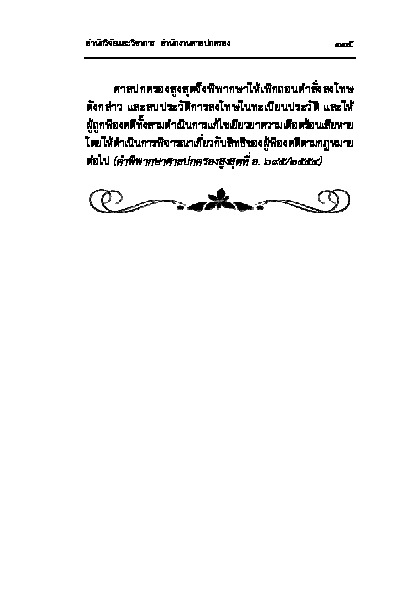 สำนักวิจัยและวิชาการ สำนักงานศาลปกครอง
ศาลปกครองสูงสุดจึงพิพากษาให้เพิกถอนคำสั่งลงโทษ
ดังกล่าว และลบประวัติการลงโทษในทะเบียนประวัติ และให้
ผู้ถูกฟ้องคดีทั้งสามดำเนินการแก้ไขเยียวยาความเดือดร้อนเสียหาย
โดยให้ดำเนินการพิจารณาเกี่ยวกับสิทธิของผู้ฟ้องคดีตามกฎหมาย
ต่อไป (คำพิพากษาศาลปกครองสูงสุดที่ อ.